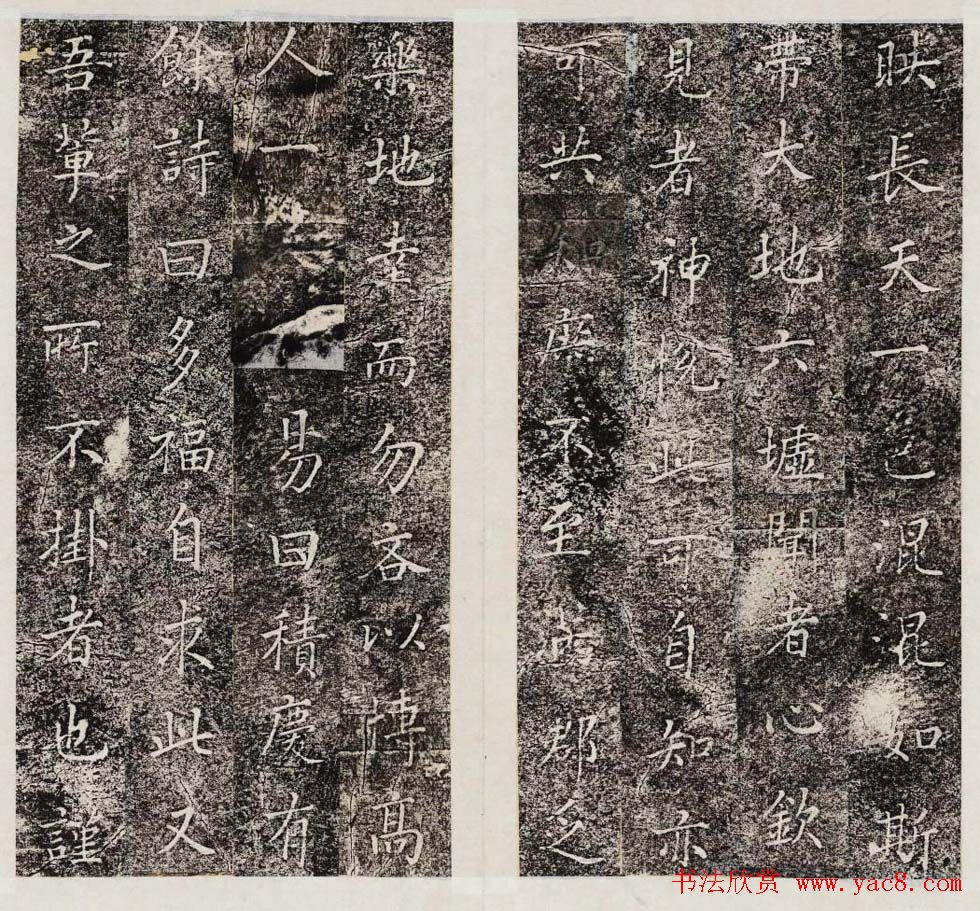 映長天一色混混如斯
帶大地六墟聞者心欽
見者神悅此可自知亦
可共知與不至此郡乏
樂地幸而勿吝以博高
人一易曰積慶有
餘詩曰多福自求此又
吾輩之所不掛者也謹
书法欣赏 www.yac8.com